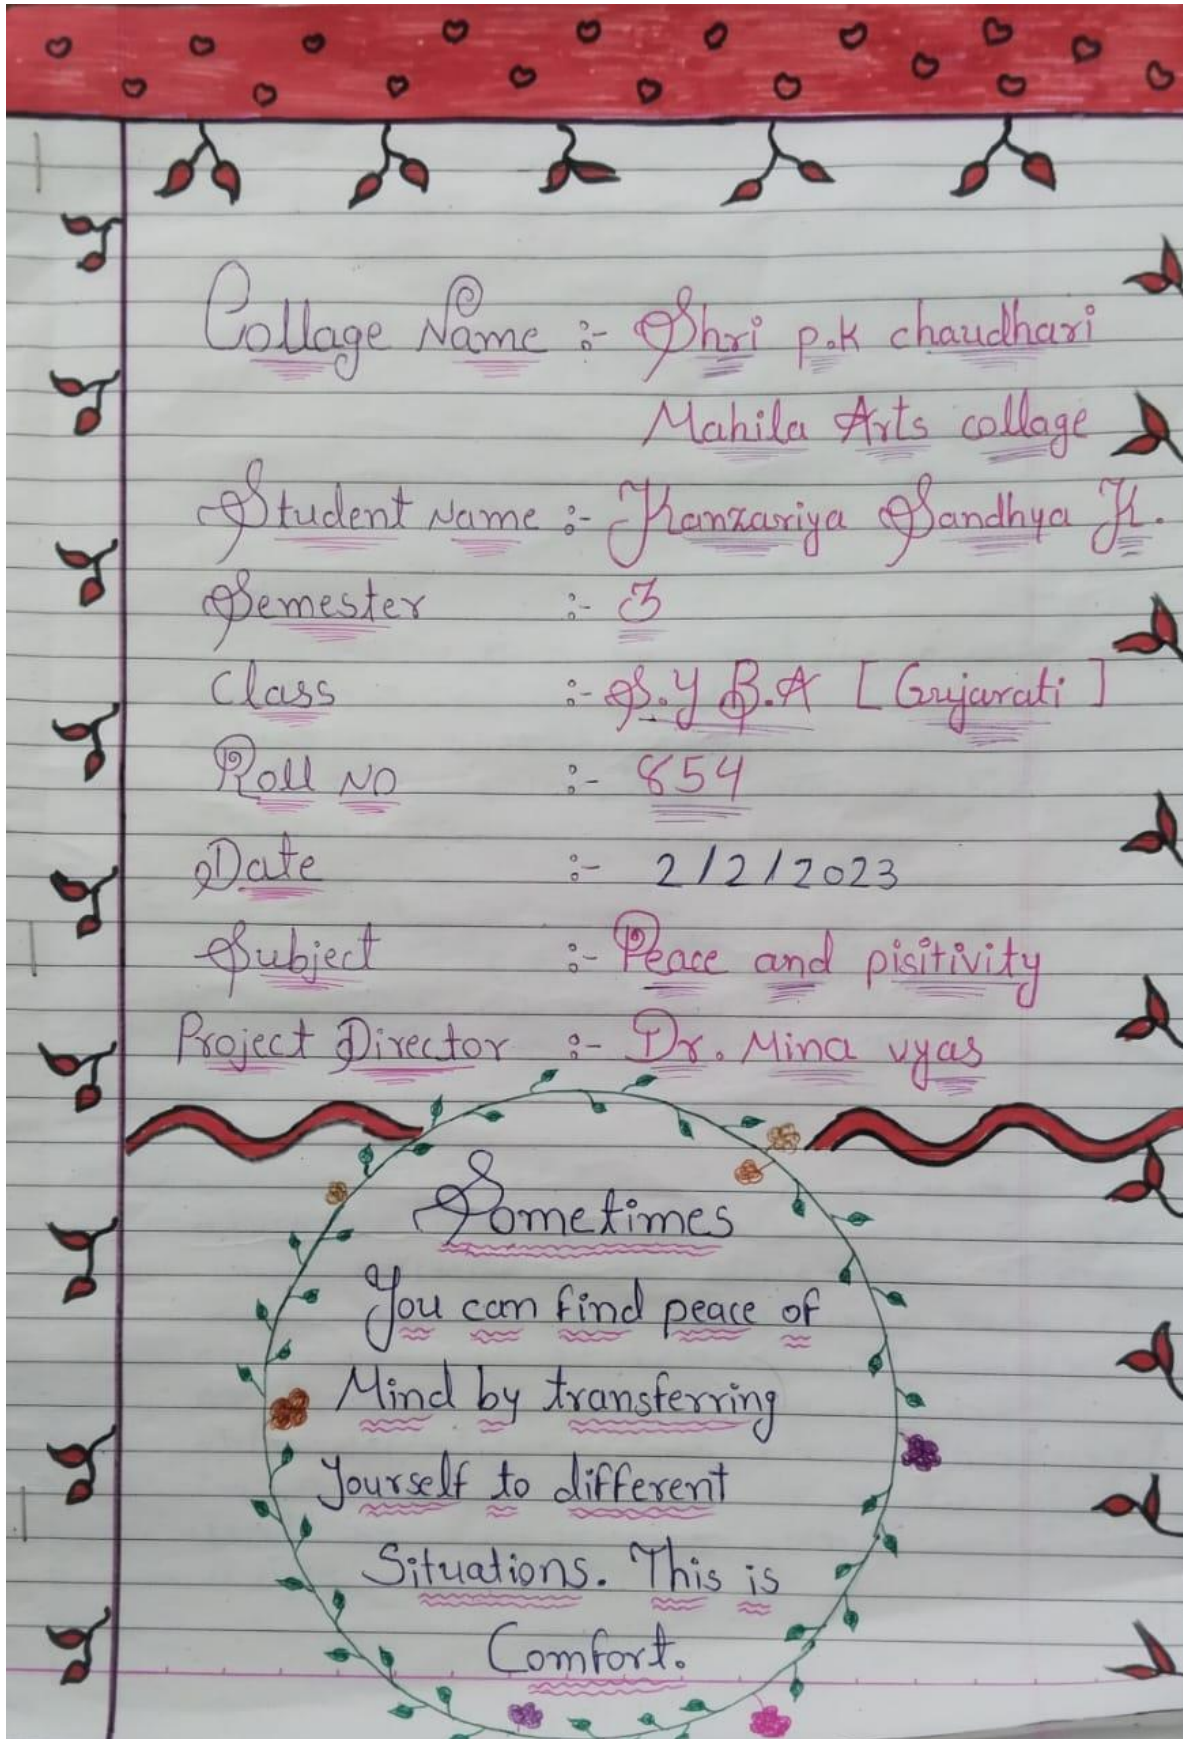 Collage Name :- Shri p.k chaudhari
Mahila Arts collage
Student Name :- Kanzariya Sandhya K.
Semester :- 3
Class :- S.Y B.A [Gujarati]
Roll NO :- 854
Date :- 2/2/2023
Subject :- Peace and pisitivity
Project Director :- Dr. Mina vyas
Sometimes
You can find peace of
Mind by transferring
Yourself to different
Situations. This is
Comfort.